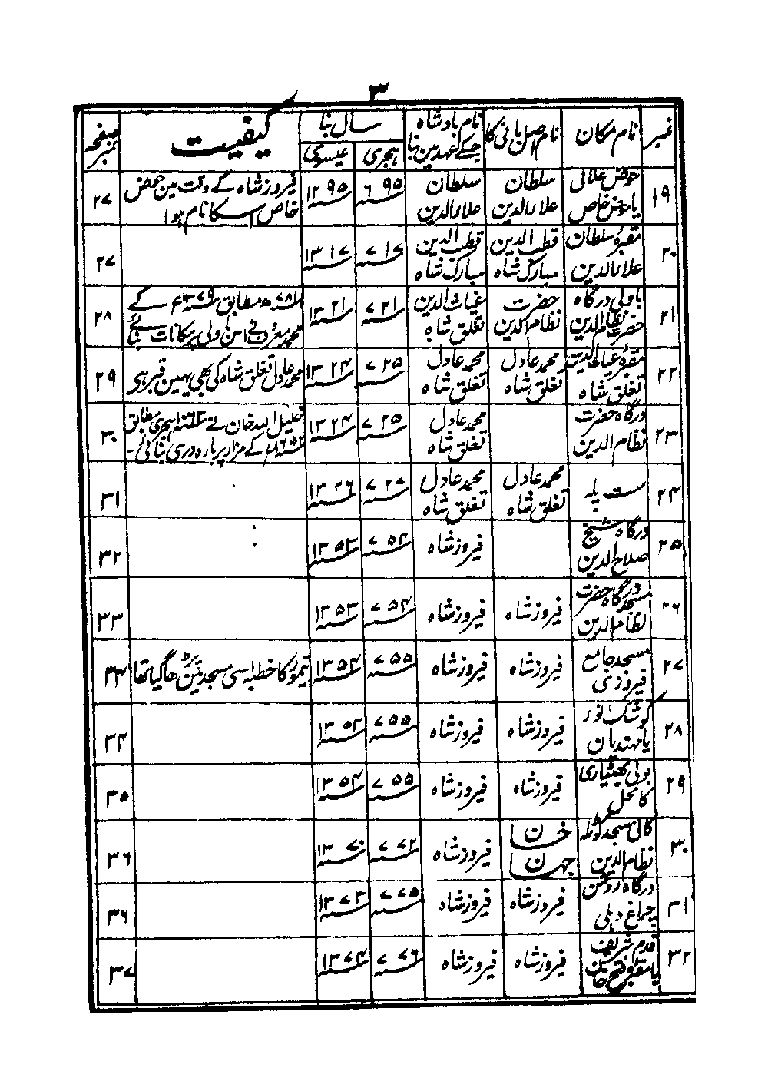 ۳
نمبر نام مکان نام اصل بانی کا نام بادشاہ جسکے عہد مین بنا سال بنا ہجری عیسوی کیفیت صفحہ نمبر
۱۹ حوض علائی یا حوض خاص سلطان علاءالدین سلطان علاءالدین ۶۹۵ ۱۲۹۵ فیروزشاہ کے وقت مین حوض خاص اسکا نام ہوا ۲۷
۲۰ مقبرہ سلطان علاءالدین قطب الدین مبارک شاہ قطب الدین مبارک شاہ ۷۱۷ ۱۳۱۷ ۲۷
۲۱ باولی درگاہ حضرت نظام الدین حضرت نظام الدین غیاث الدین تغلق شاہ ۷۲۱ ۱۳۲۱ ۷۸۱ھ مطابق ۱۳۷۹ء کے محمد معروف نے اس باولی پر مکانات بنائے ۲۸
۲۲ مقبرہ غیاث الدین تغلق شاہ محمد عادل تغلق شاہ محمد عادل تغلق شاہ ۷۲۵ ۱۳۲۴ محمد عادل تغلق شاہ کی بھی یہین قبر ہی ۲۹
۲۳ درگاہ حضرت نظام الدین محمد عادل تغلق شاہ ۷۲۵ ۱۳۲۴ خلیل اللہ خان نے ہجری مطابق کے مزار پر بارہ دری بنائی ۳۰
۲۴ ست پلہ محمد عادل تغلق شاہ محمد عادل تغلق شاہ ۷۲۷ ۱۳۲۶ ۳۱
۲۵ درگاہ شیخ صلاح الدین فیروزشاہ ۷۵۴ ۱۳۵۳ ۳۲
۲۶ مسجد درگاہ حضرت نظام الدین فیروزشاہ فیروزشاہ ۷۵۴ ۱۳۵۳ ۳۳
۲۷ مسجد جامع فیروزی فیروزشاہ فیروزشاہ ۷۵۵ ۱۳۵۴ تیمور کا خطبہ اسی مسجد مین پڑھا گیا تھا ۳۴
۲۸ کوشک انور یا مہندیان فیروزشاہ فیروزشاہ ۷۵۵ ۱۳۵۴ ۳۴
۲۹ بولی بھٹیاری کا محل فیروزشاہ فیروزشاہ ۷۵۵ ۱۳۵۴ ۳۵
۳۰ کالی مسجد کوٹلہ نظام الدین خان جہان فیروزشاہ ۷۷۲ ۱۳۷۰ ۳۶
۳۱ درگاہ روشن چراغ دہلی فیروزشاہ فیروزشاہ ۷۷۵ ۱۳۷۳ ۳۶
۳۲ قدم شریف یا مقبرہ فتح خان فیروزشاہ فیروزشاہ ۷۷۶ ۱۳۷۴ ۳۷